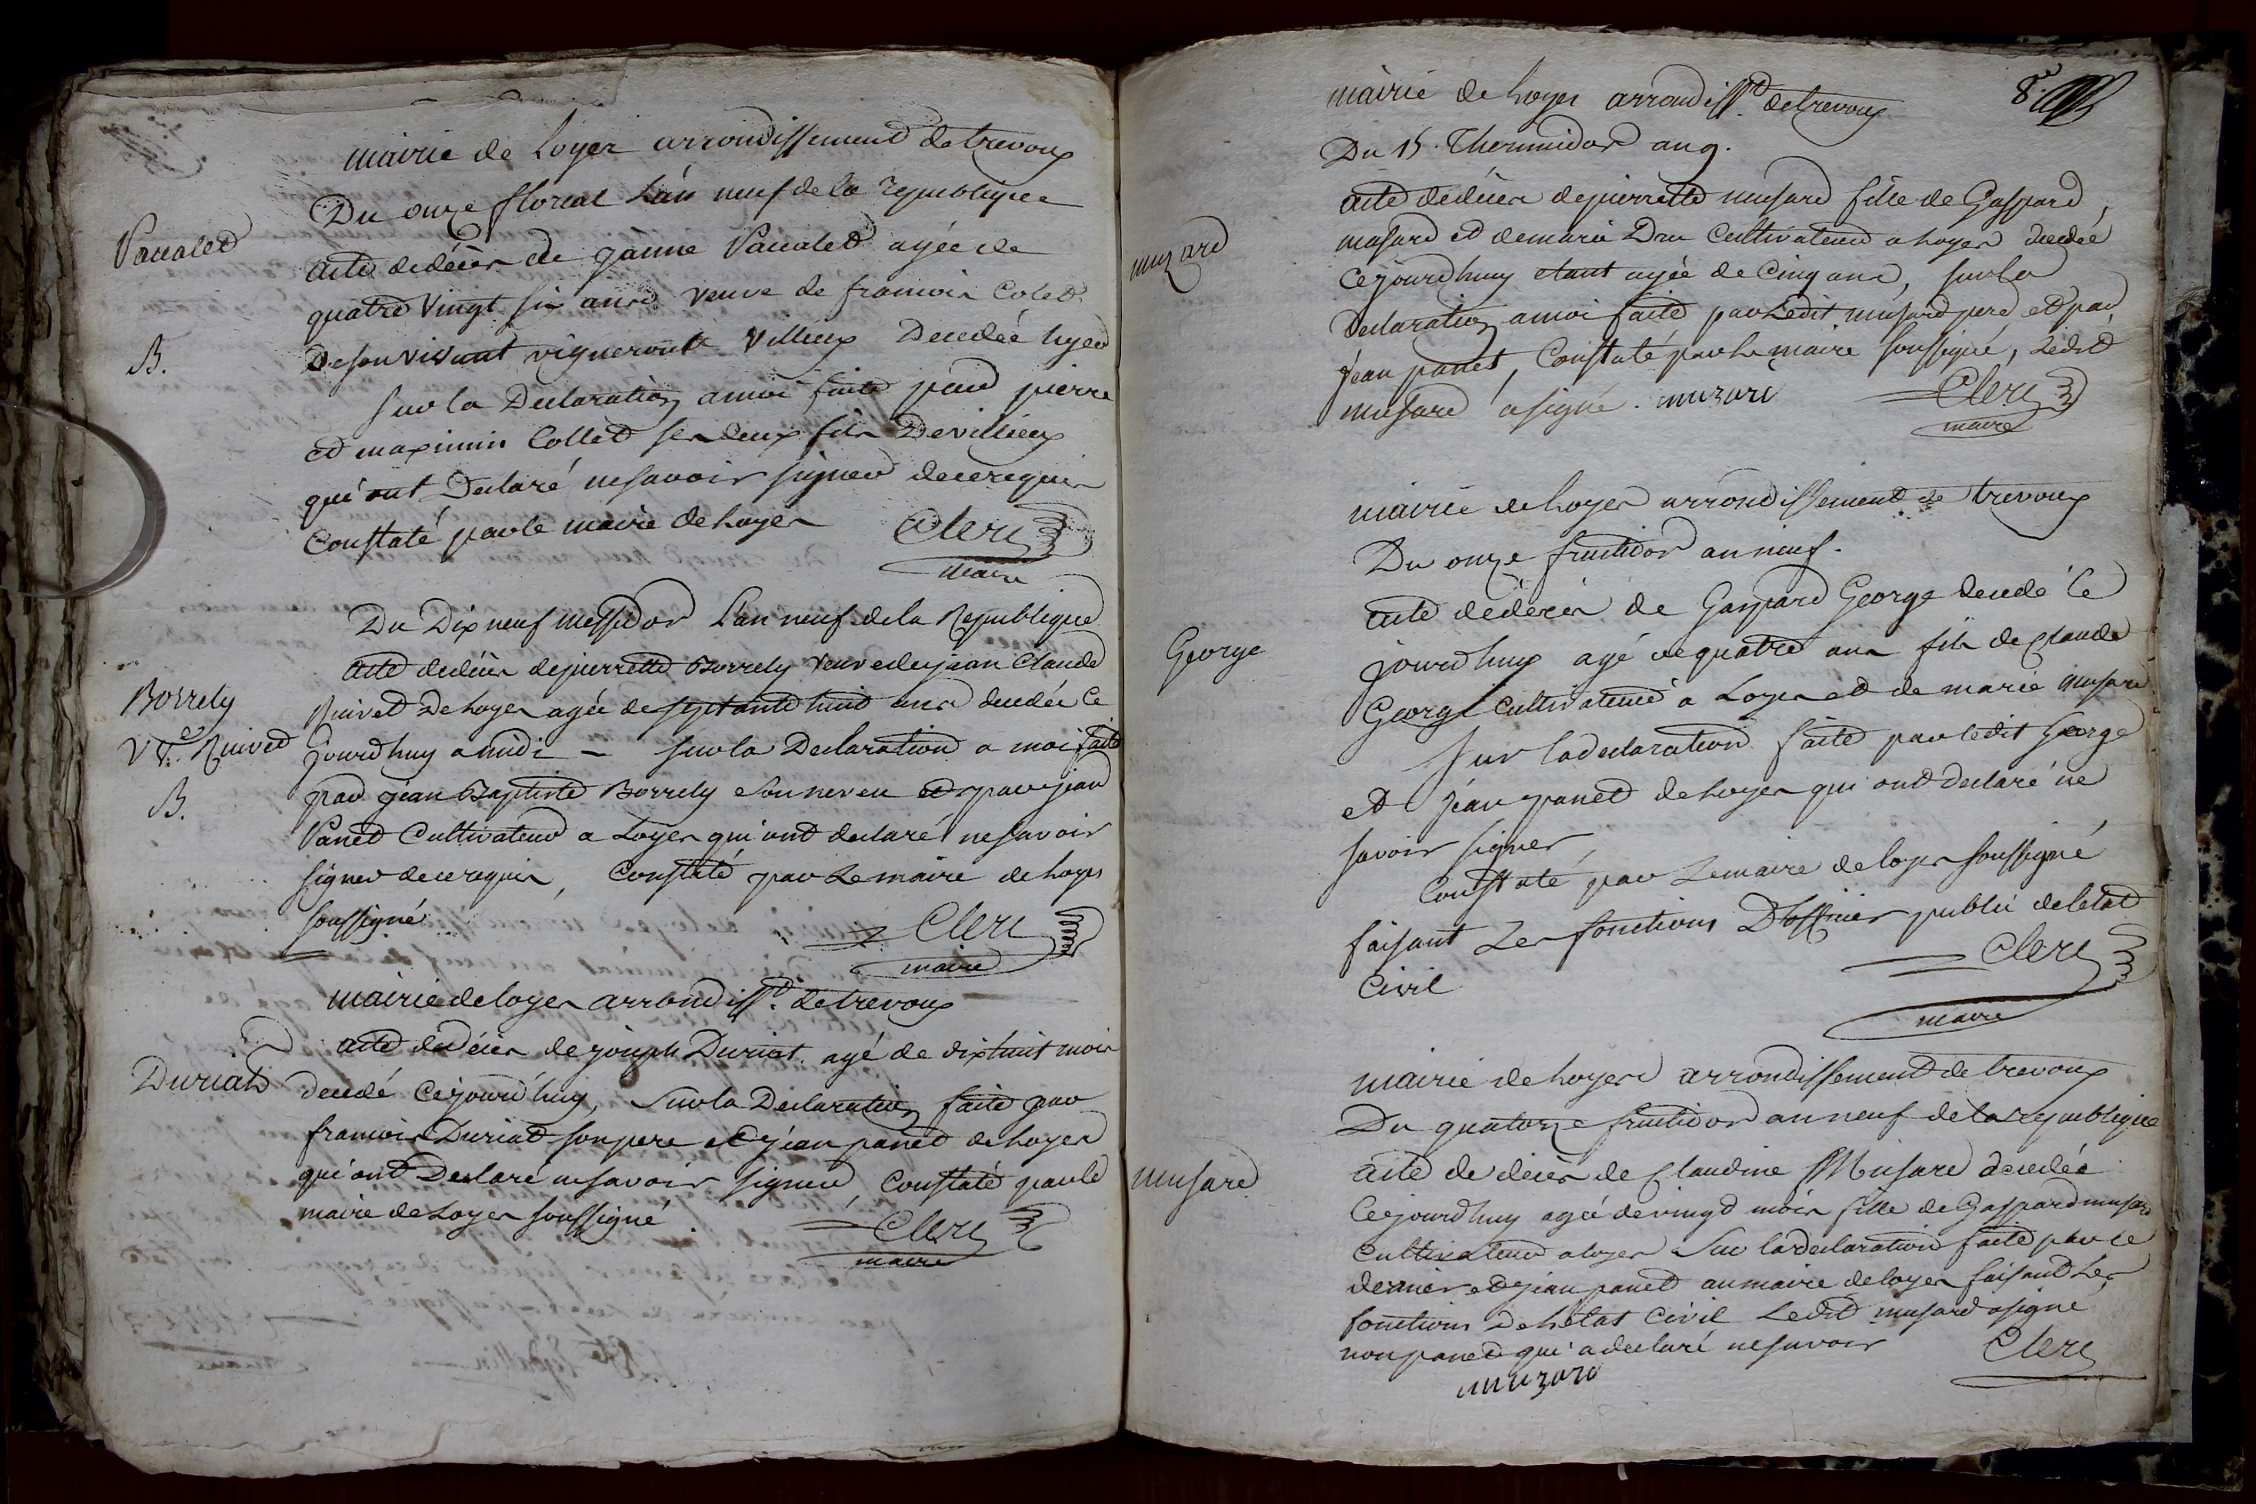 mairie de Loyer arrondissement de trevoux
Du onze floreal L'an neuf de la republique
Vacalet
acte de décès de janne Vacalet agée de
quatre Vingt six ans veuve de francois Colet
B.
de son vivant vigneron a Villieux Decedée hyer
sur la Declaration a moi faite par pierre
et maximin Collet ses deux fils De villieux
qui ont Declaré ne savoir signer de ce requis
Constaté par le maire de Loyes
Clerc
maire
Du Dix neuf messidor L'an neuf de la Republique
acte de décès de pierrette Borrely veuve de jean Claude
Borrely
Ruivet de Loyes agée de septante huit ans decedée ce
Ve. Ruivet
jourd'huy a midi - sur la Declaration a moi faite
B.
par jean Baptiste Borrely son neveu et par jean
Panet Cultivateur a Loyes qui ont declaré ne savoir
signer de ce requis, Constaté par Le maire de Loyes
soussigné
Clerc
maire
mairie de loyes arrondisst. de trevoux
acte de décès de joseph Duriat agé de dixhuit mois
Duriat
decedé cejourd'huy, sur la Declaration faite par
francois Duriat son pere et jean panet de Loyes
qui ont Declaré ne savoir signer, Constaté par le
maire de Loyes soussigné.
Clerc
maire
8e
mairie de Loyes arrondisst. de trevoux
Du 15. Thermidor an 9.
acte de décès de pierrette musard fille de Gaspard
muzard
musard et de marie Dru Cultivateur a Loyes decedée
cejourd'huy etant agée de Cinq ans, sur la
Declaration a moi faite par Ledit musard pere et par
jean panet, Constaté par Le maire soussigné, Ledit
musard a signé. muzard
Clerc
maire
mairie de Loyes arrondissement de trevoux
Du onze fructidor an neuf.
acte de décès de Gaspard George decedé ce
George
jourd'huy agé de quatre ans fils de Claude
George cultivateur a Loyes et de marie musard
sur la declaration faite par ledit George
et jean panet de Loyes qui ont declaré ne
savoir signer,
Constaté par Le maire de loyes soussigné
faisant Les fonctions D'officier public de l'etat
Civil
Clerc
maire
mairie de Loyes arrondissement de trevoux
Du quatorze fructidor an neuf de la republique
musard
acte de décès de Claudine Musard decedée
cejourd'huy agée de vingt mois fille de Gaspard musard
cultivateur a loyes sur la declaration faite par ce
dernier et jean panet au maire de loyes faisant Les
fonctions De L'etat Civil Ledit musard a signé
non panet qui a declaré ne savoir
Clerc
muzard